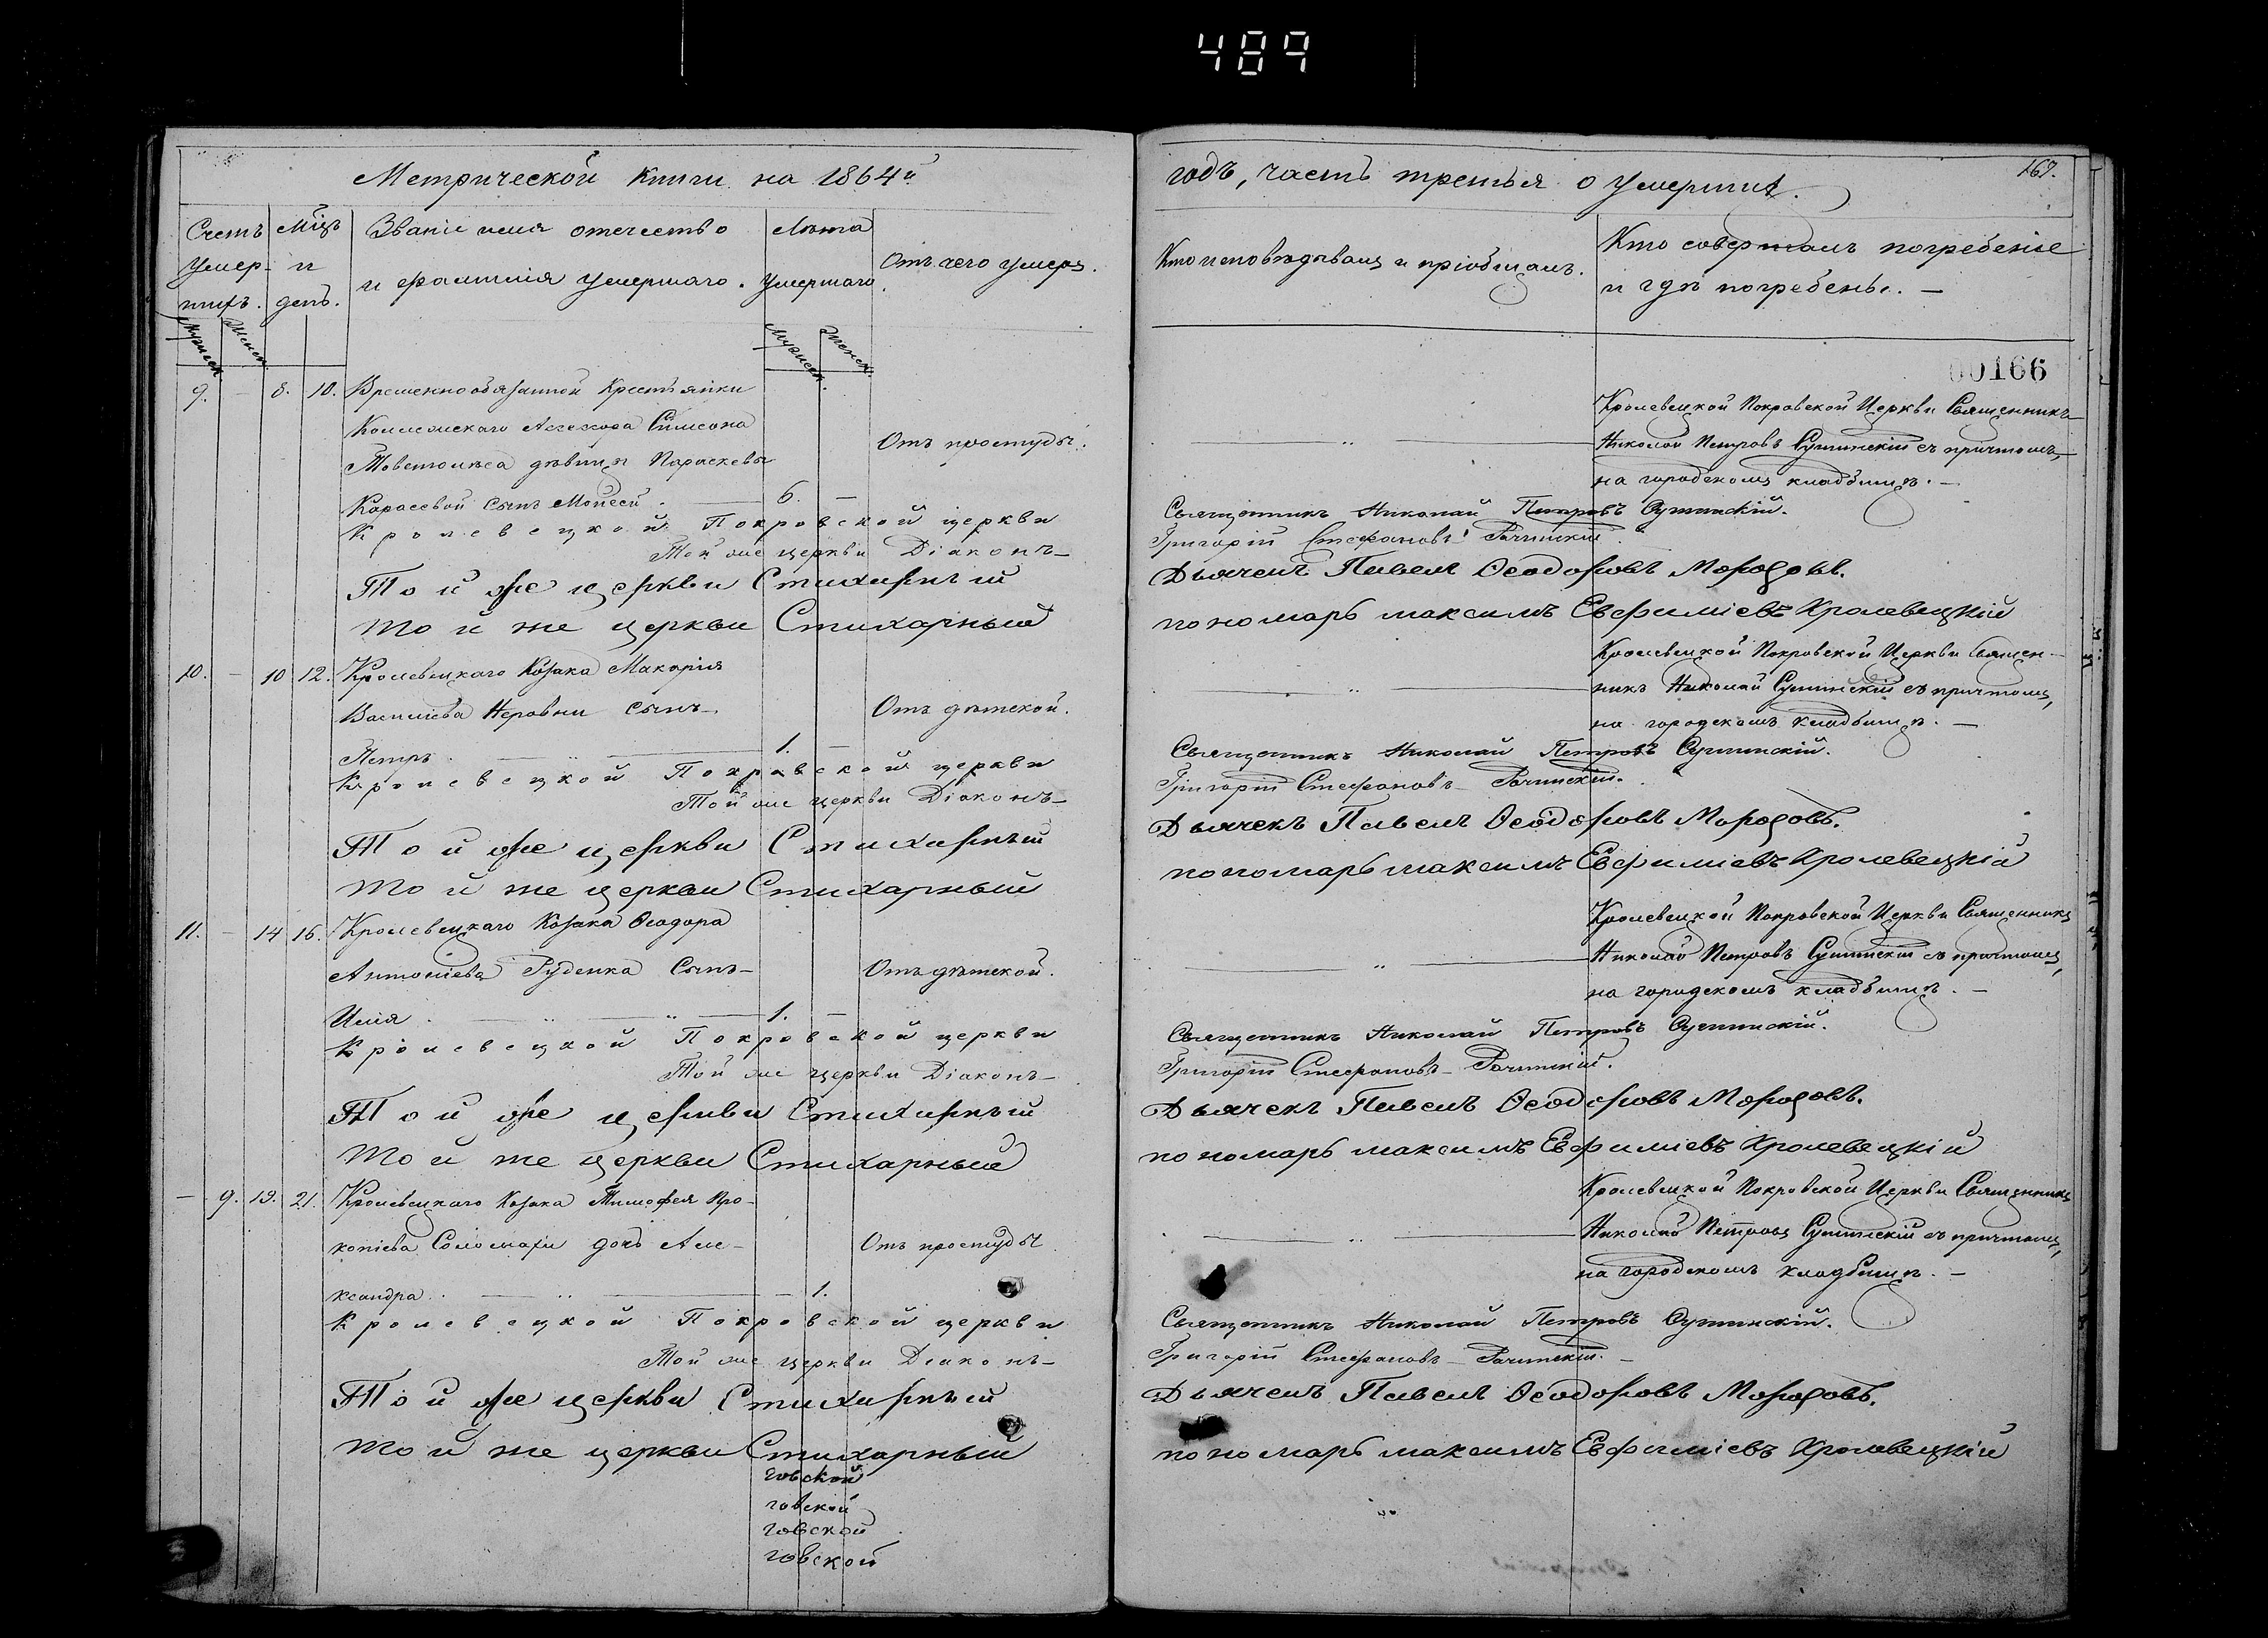 489
Метрической книги на 1864й
годъ, часть третья о умершихъ.
167.
Счетъ умер- шихъ.
Мцъ и день.
Званіе имя отечество
и фамилія умершаго.
Лѣта умершаго.
Отъ чего умеръ.
Кто исповѣдывалъ и пріобщалъ.
Кто совершалъ погребеніе
и гдѣ погребены. —
Мужеск. Женск.
Мужеск. Женск.
00166
9. — 8. 10. Временнообязанной Крестьянки
Коллежскаго Асессора Симеона
дѣвицы Параскевы
Карасевой сынъ Моисей. — 6. —
Отъ простуды.
Кролевецкой Покровской Церкви Священникъ
Николай Петровъ Сушинскій съ причтомъ,
на городскомъ кладбищѣ. —
Кролевецкой Покровской церкви Священникъ Николай Петровъ Сушинскій.
Той же церкви Діаконъ Григорій Стефановъ Рачинскій.
Той же церкви Стихарный Дьячекъ Павелъ Ѳеодоровъ Морозовъ.
той же церкви Стихарный пономарь максимъ Евфиміевъ Кролевецкій
10. — 10 12. Кролевецкаго Козака Макарія
Василіева Неровни сынъ
Петръ — 1. —
Отъ дѣтской.
Кролевецкой Покровской Церкви Священ-
никъ Николай Сушинскій съ причтомъ,
на городскомъ кладбищѣ. —
Кролевецкой Покровской церкви Священникъ Николай Петровъ Сушинскій.
Той же церкви Діаконъ Григорій Стефановъ Рачинскій.
Той же церкви Стихарный Дьячекъ Павелъ Ѳеодоровъ Морозовъ.
той же церкви Стихарный пономарь максимъ Евфиміевъ Кролевецкій
11. — 14 16. Кролевецкаго Козака Ѳеодора
Антоніева Руденка Сынъ
Илія. — 1. —
Отъ дѣтской.
Кролевецкой Покровской Церкви Священникъ
Николай Петровъ Сушинскій съ причтомъ,
на городскомъ кладбищѣ. —
Кролевецкой Покровской церкви Священникъ Николай Петровъ Сушинскій.
Той же церкви Діаконъ Григорій Стефановъ Рачинскій.
Той же церкви Стихарный Дьячекъ Павелъ Ѳеодоровъ Морозовъ.
той же церкви Стихарный пономарь максимъ Евфиміевъ Кролевецкій
— 9. 19. 21. Кролевецкаго Козака Тимофея Про-
копіева Соломахи дочь Але-
ксандра. — 1.
Отъ простуды
Кролевецкой Покровской Церкви Священникъ
Николай Петровъ Сушинскій съ причтомъ,
на городскомъ кладбищѣ. —
Кролевецкой Покровской церкви Священникъ Николай Петровъ Сушинскій.
Той же церкви Діаконъ Григорій Стефановъ Рачинскій.
Той же церкви Стихарный Дьячекъ Павелъ Ѳеодоровъ Морозовъ.
той же церкви Стихарный пономарь максимъ Евфиміевъ Кролевецкій
говской
говской
говской
говской